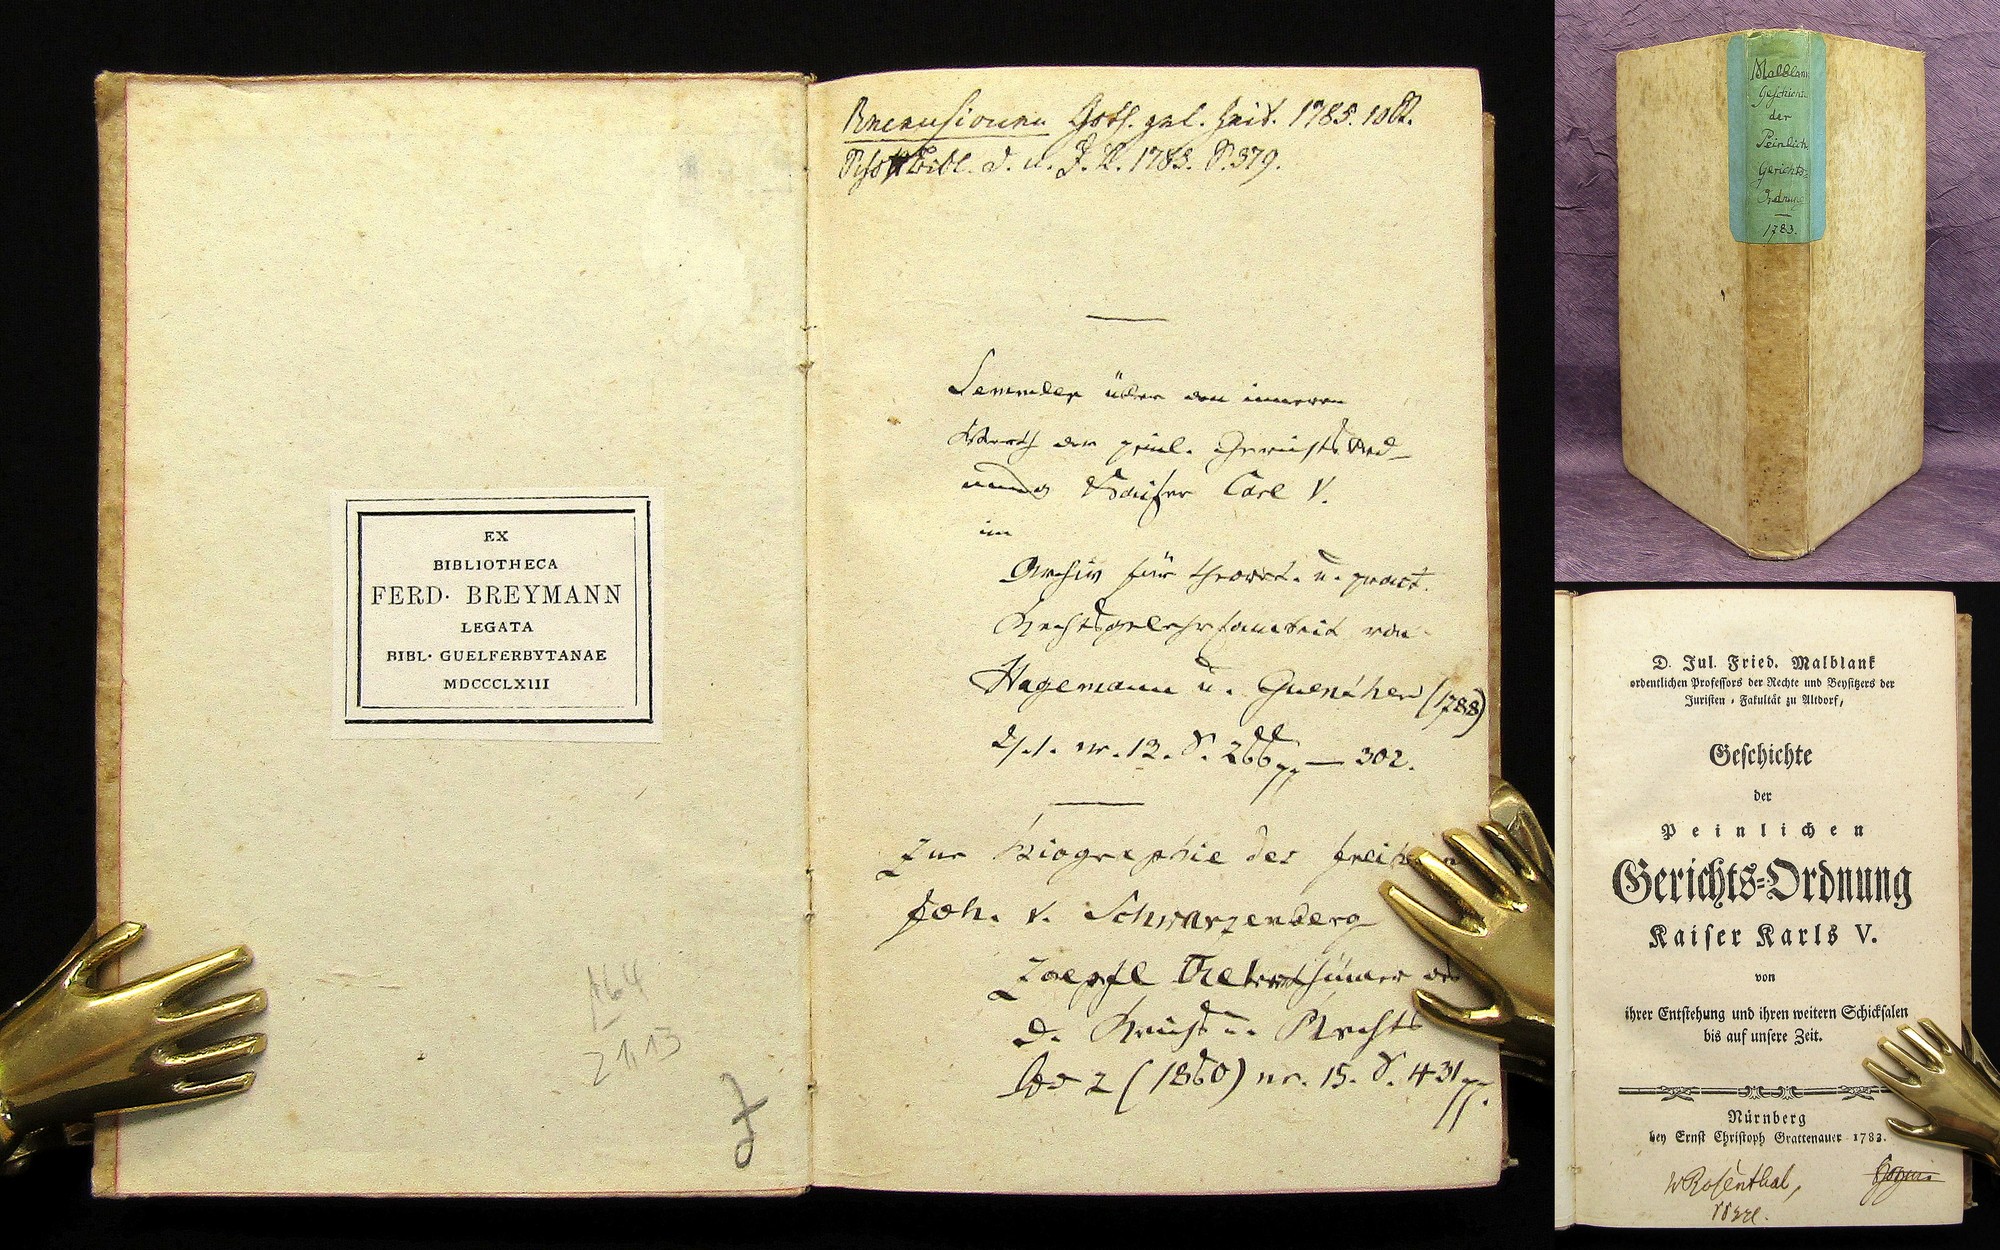 EX
BIBLIOTHECA
FERD· BREYMANN
LEGATA
BIBL· GUELFERBYTANAE
MDCCCLXIII
164
2113
Recensionen Goth. gel. Zeit. 1785.
Bibl. 1783. S. 379.
Semmler über den inneren
Werth der peinl. Gerichts Ord-
nung Kaiser Carl V.
im
Archiv für theoret. u. pract.
Rechtsgelehrsamkeit von
Hagemann u. Guenther (1788)
nr. 13. S. 266 — 302.
Zur Biographie des
Joh. v. Schwarzenberg
Zoepfl Alterthümer
d. Reichs u. Rechts
Bd 2 (1860) nr. 15. S. 431
Malblanc
Geschicht
der
Peinlich
Gerichts-
Ordnung
1783.
D. Jul. Fried. Malblank
ordentlichen Professors der Rechte und Beysitzers der
Juristen-Fakultät zu Altdorf,
Geschichte
der
Peinlichen
Gerichts-Ordnung
Kaiser Karls V.
von
ihrer Entstehung und ihren weitern Schicksalen
bis auf unsere Zeit.
Nürnberg
bey Ernst Christoph Grattenauer 1783.
W Rosenthal,